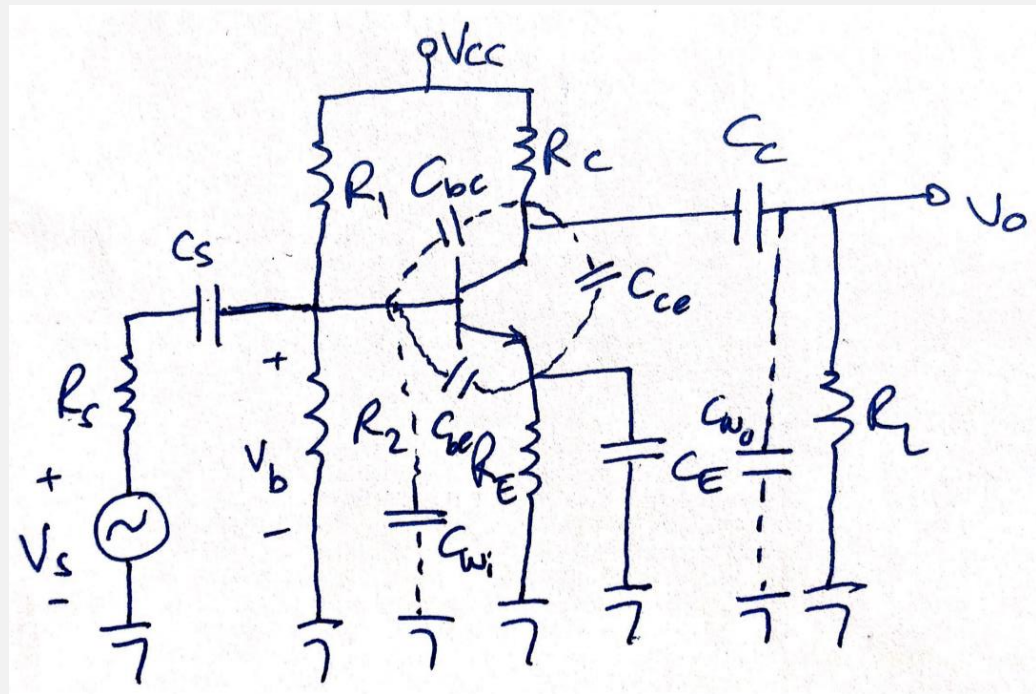 Vcc
R1
Cbc
Rc
Cc
Vo
Cs
Cce
+
Rs
Vb
R2
Cbe
RE
CE
Cwo
RL
+
Vs
-
-
Cwi